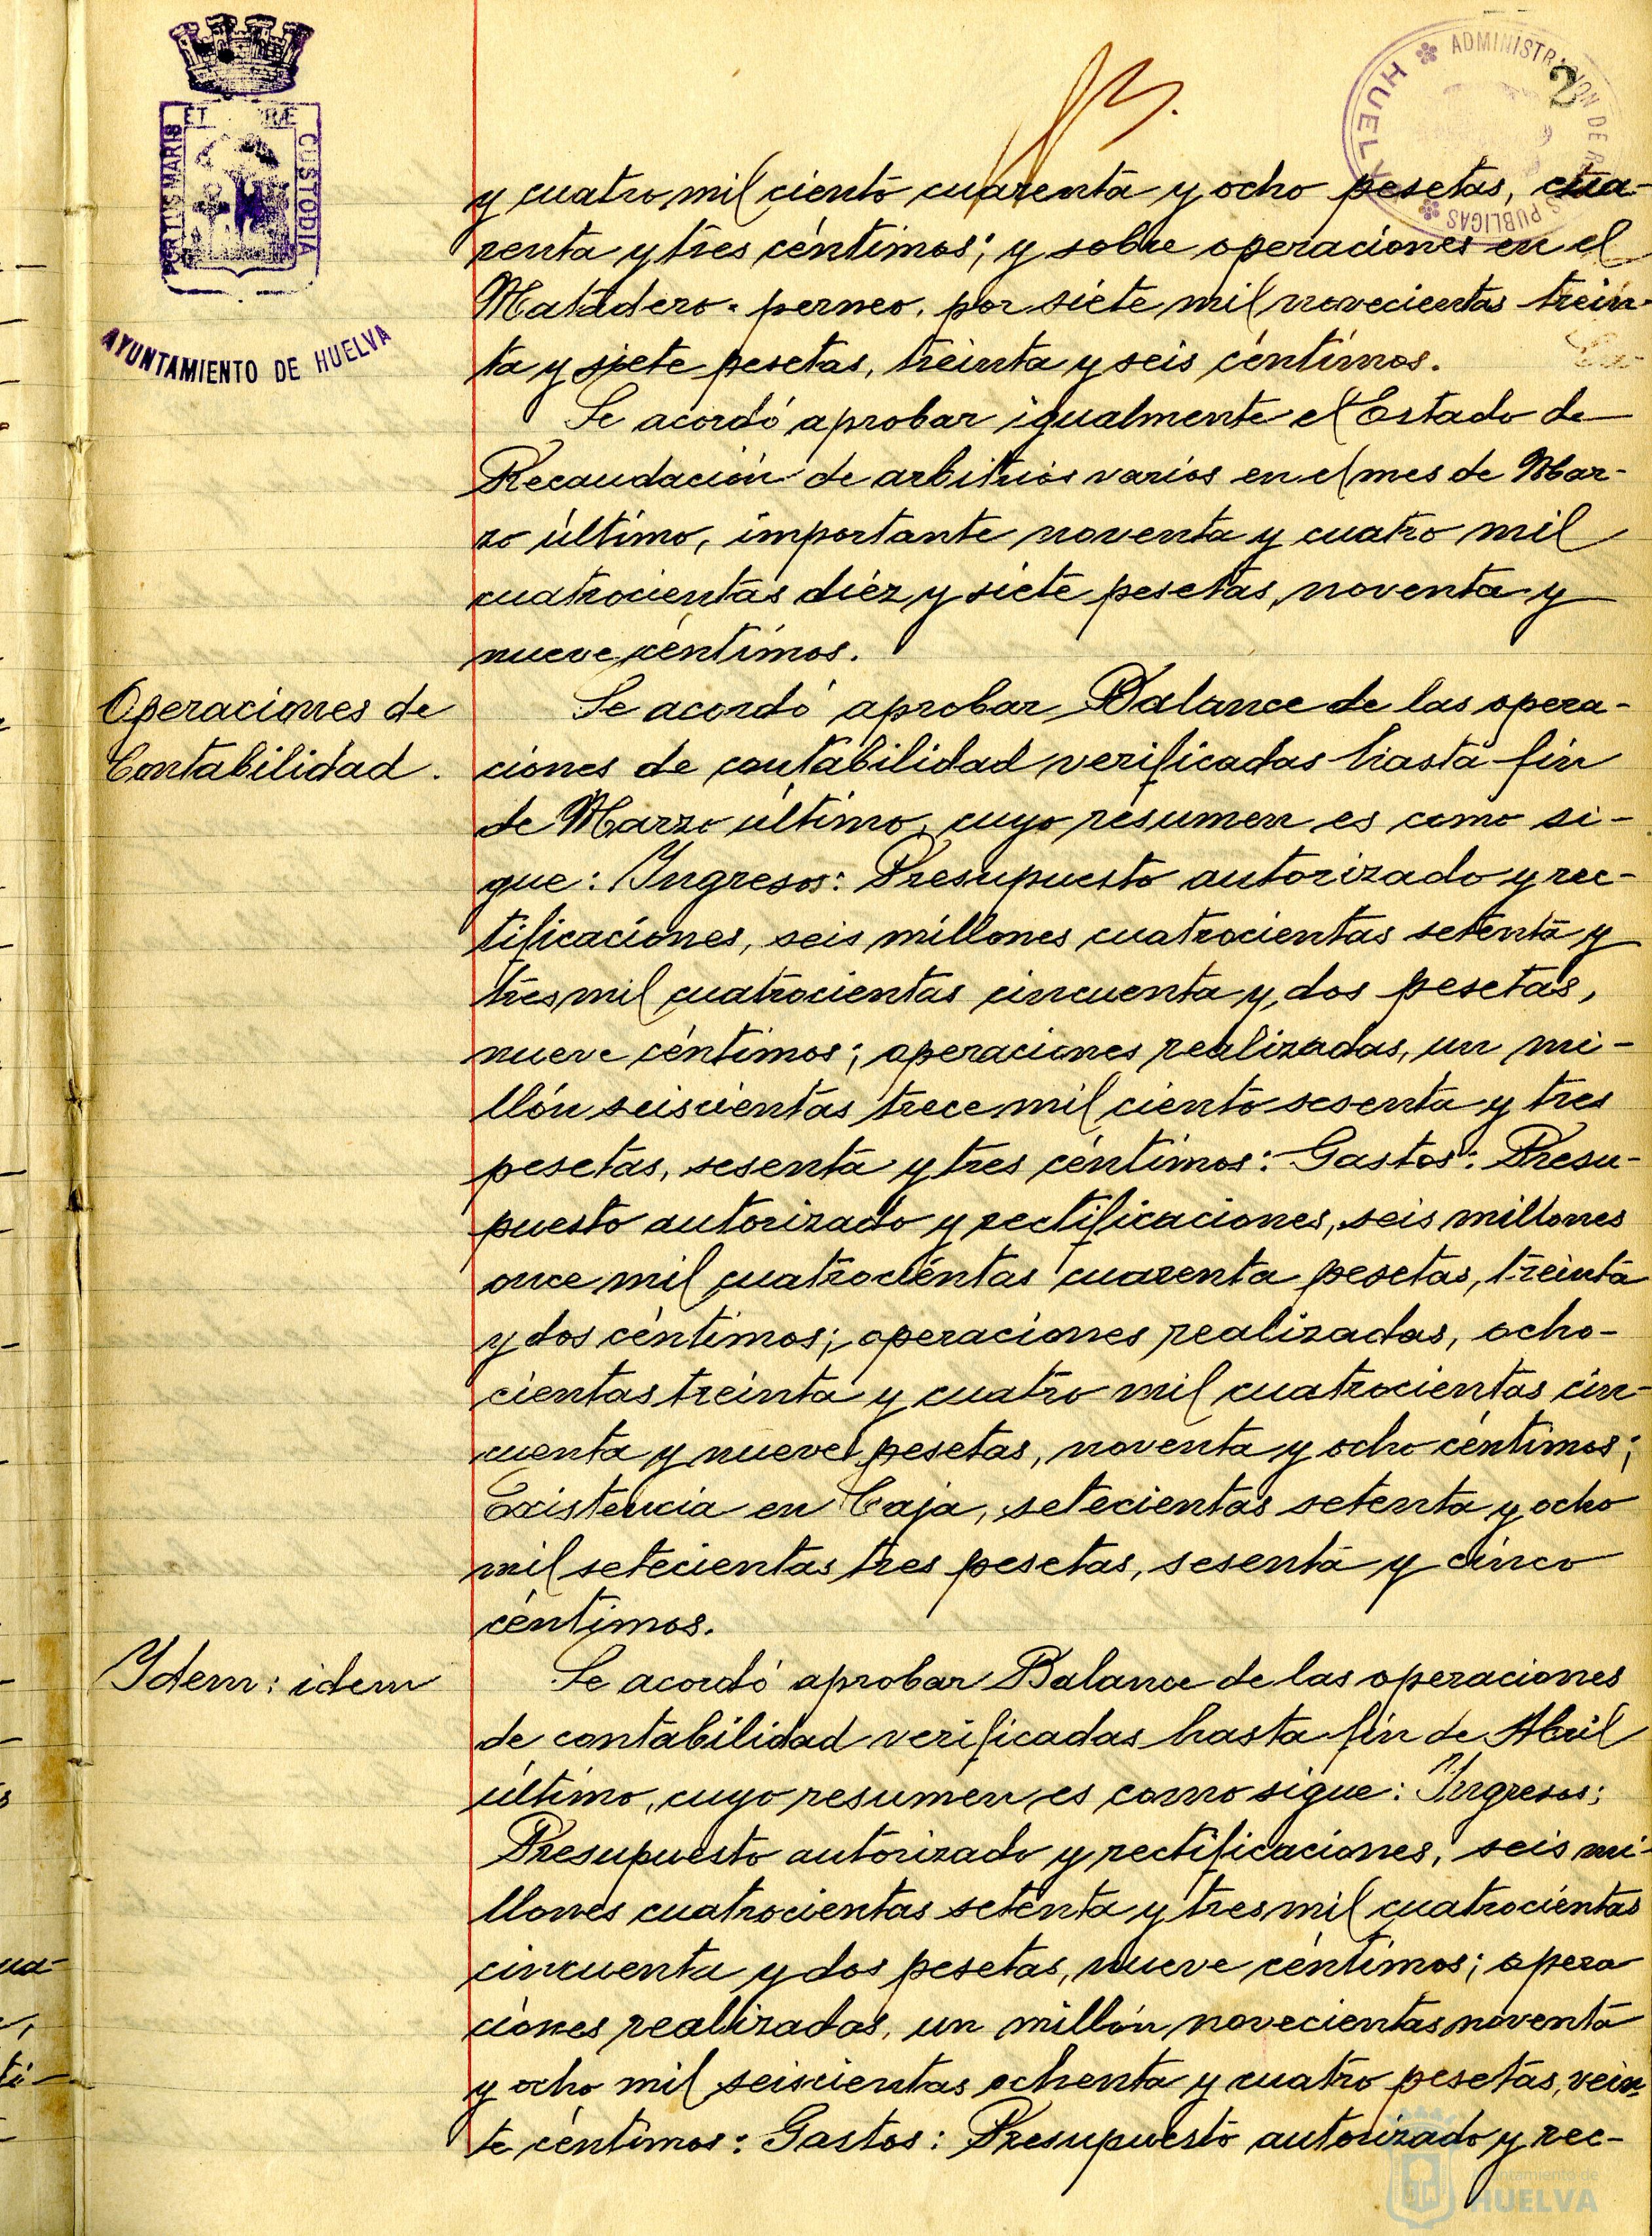 PORTUS MARIS
ET
CUSTODIA
AYUNTAMIENTO DE HUELVA
ADMINISTRACION DE
PUBLICAS
2
y cuatro mil ciento cuarenta y ocho pesetas, cua-
renta y tres céntimos; y sobre operaciones en el
Matadero-perneo, por siete mil novecientas trein-
ta y siete pesetas, treinta y seis céntimos.
Se acordó aprobar igualmente el Estado de
Recaudación de arbitrios varios en el mes de Mar-
zo último, importante noventa y cuatro mil
cuatrocientas diez y siete pesetas, noventa y
nueve céntimos.
Operaciones de
Contabilidad.
Se acordó aprobar Balance de las opera-
ciones de contabilidad verificadas hasta fin
de Marzo último, cuyo resumen es como si-
gue: Ingresos: Presupuesto autorizado y rec-
tificaciones, seis millones cuatrocientas setenta y
tres mil cuatrocientas cincuenta y dos pesetas,
nueve céntimos; operaciones realizadas, un mi-
llón seiscientas trece mil ciento sesenta y tres
pesetas, sesenta y tres céntimos: Gastos: Presu-
puesto autorizado y rectificaciones, seis millones
once mil cuatrocientas cuarenta pesetas, treinta
y dos céntimos; operaciones realizadas, ocho-
cientas treinta y cuatro mil cuatrocientas cin-
cuenta y nueve pesetas, noventa y ocho céntimos;
Existencia en Caja, setecientas setenta y ocho
mil setecientas tres pesetas, sesenta y cinco
céntimos.
Ydem: idem
Se acordó aprobar Balance de las operaciones
de contabilidad verificadas hasta fin de Abril
último, cuyo resumen es como sigue: Ingresos;
Presupuesto autorizado y rectificaciones, seis mi-
llones cuatrocientas setenta y tres mil cuatrocientas
cincuenta y dos pesetas, nueve céntimos; opera
ciones realizadas, un millón novecientas noventa
y ocho mil seiscientas ochenta y cuatro pesetas, vein-
te céntimos: Gastos: Presupuesto autorizado y rec-
Ayuntamiento de
HUELVA